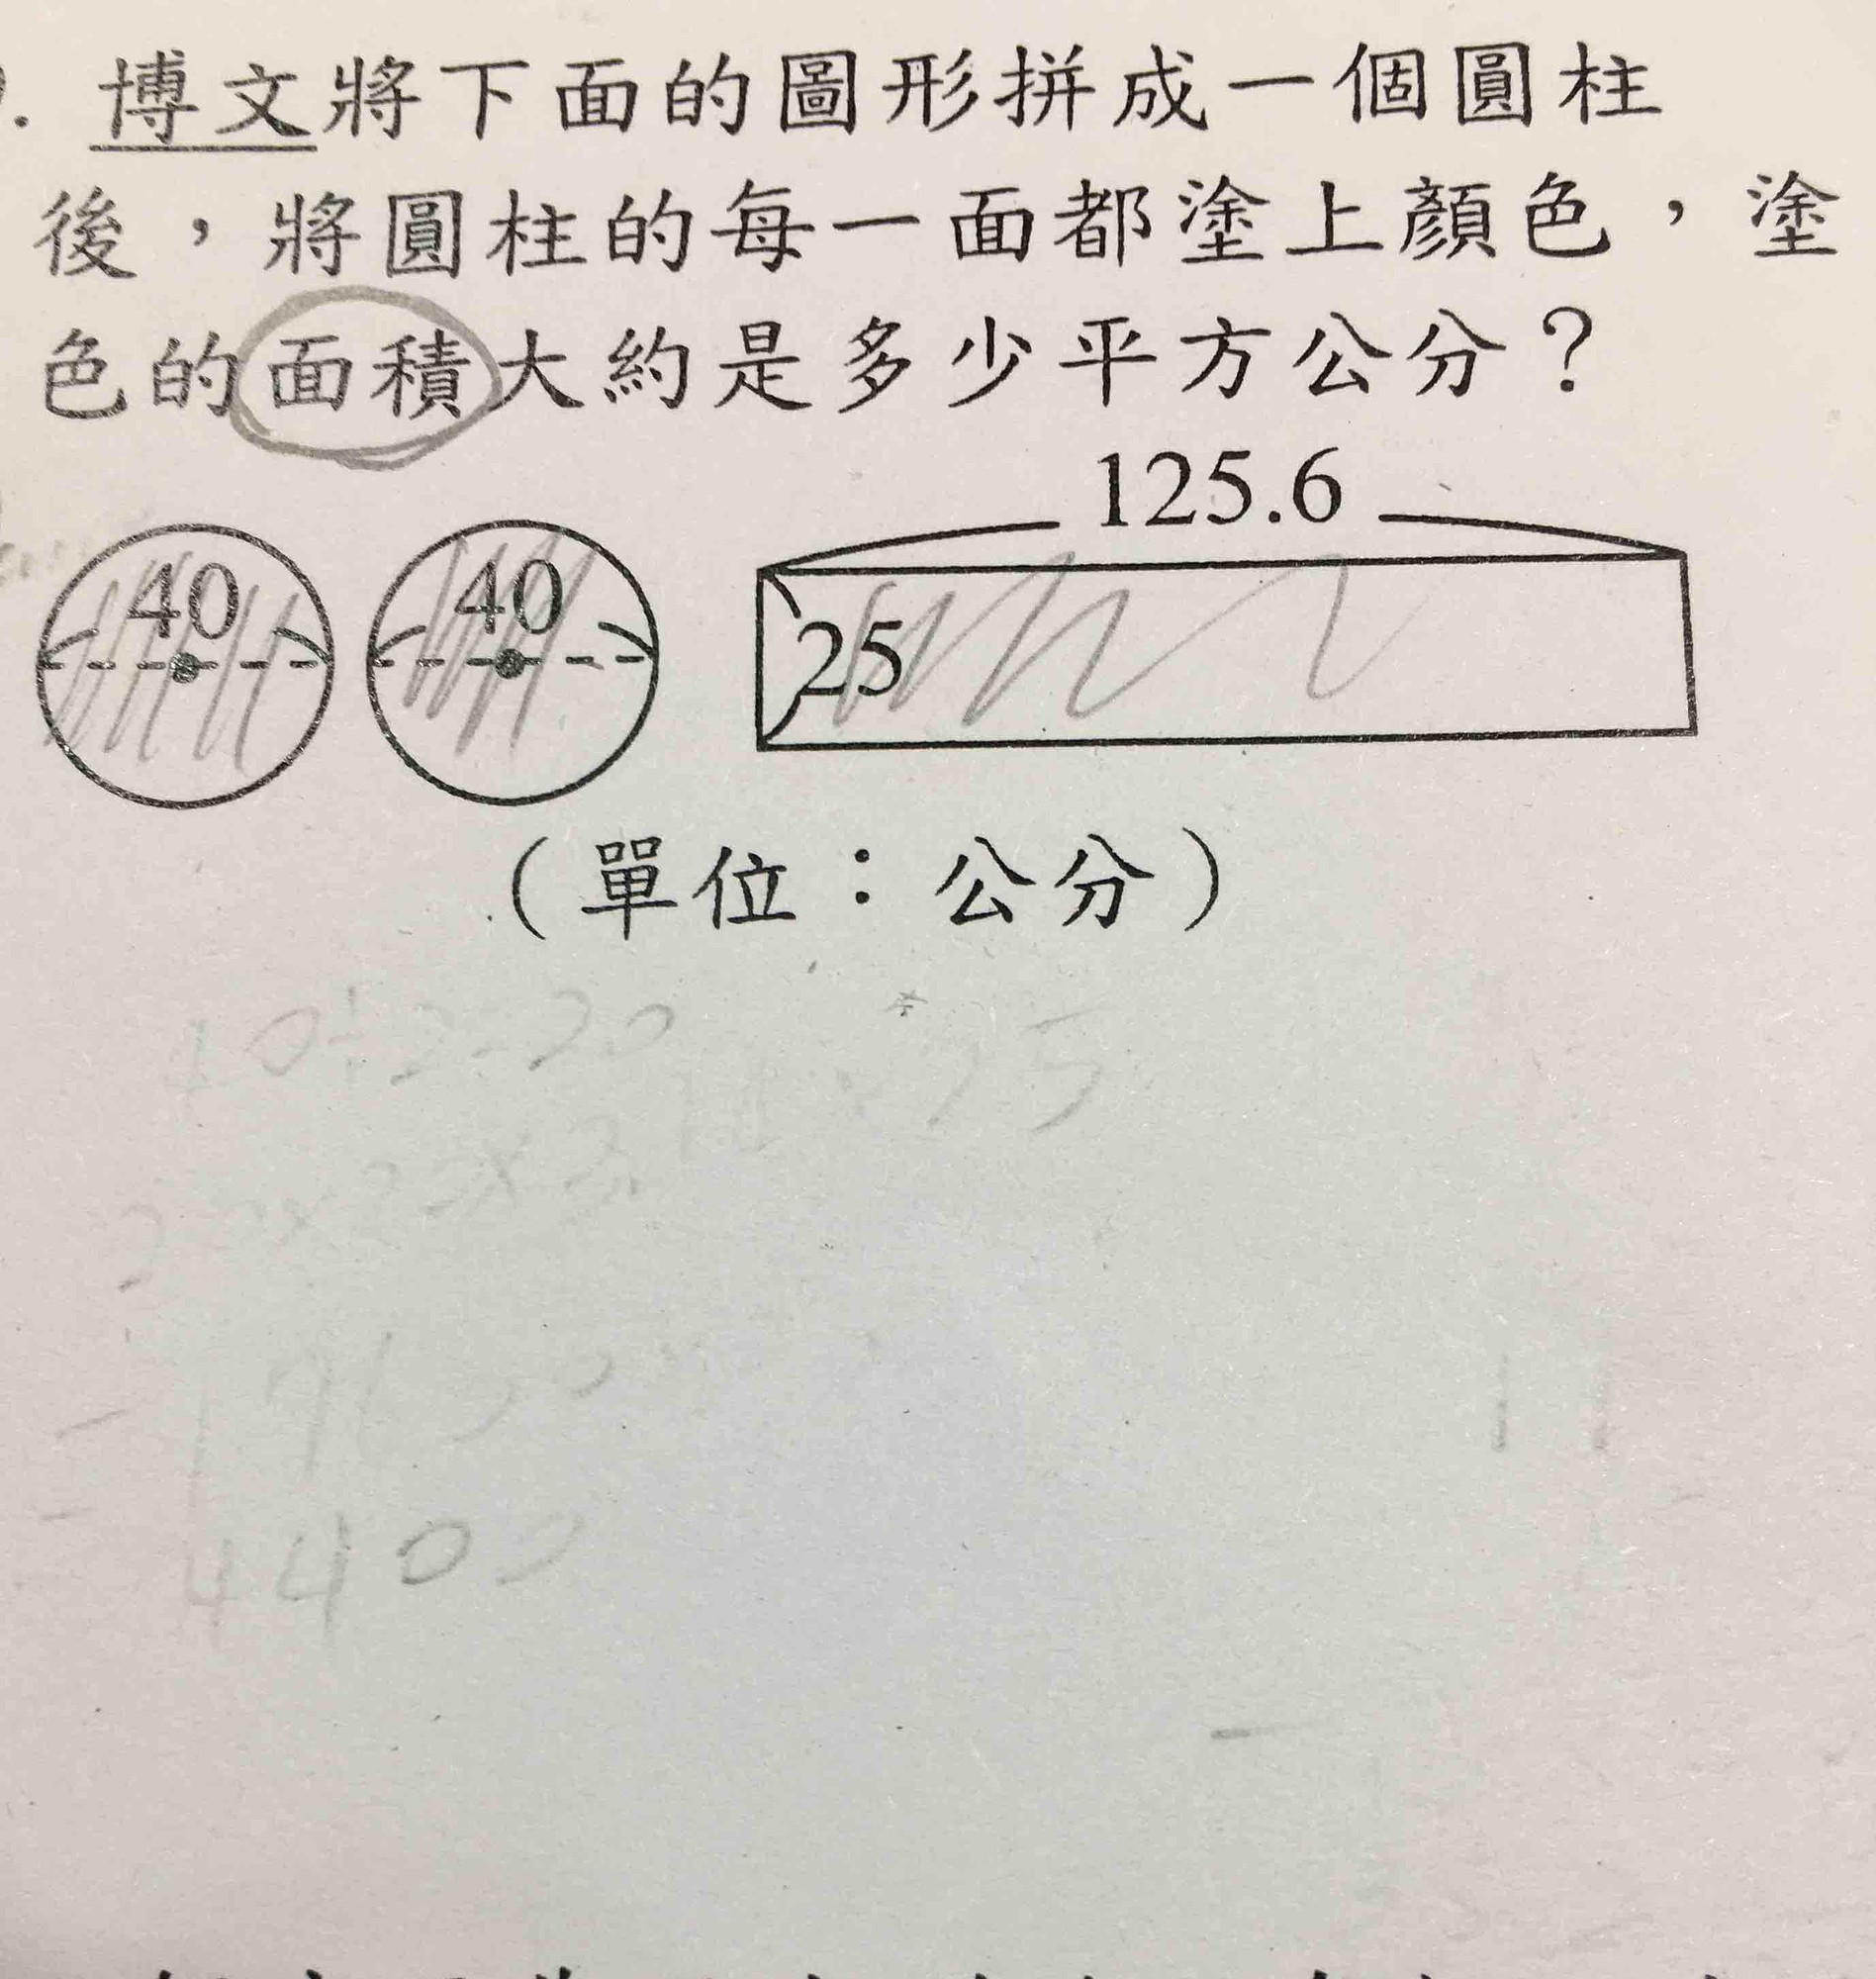 . 博文將下面的圖形拼成一個圓柱
後，將圓柱的每一面都塗上顏色，塗
色的面積大約是多少平方公分？
125.6
40 40 25
（單位：公分）
40÷2=20
4400